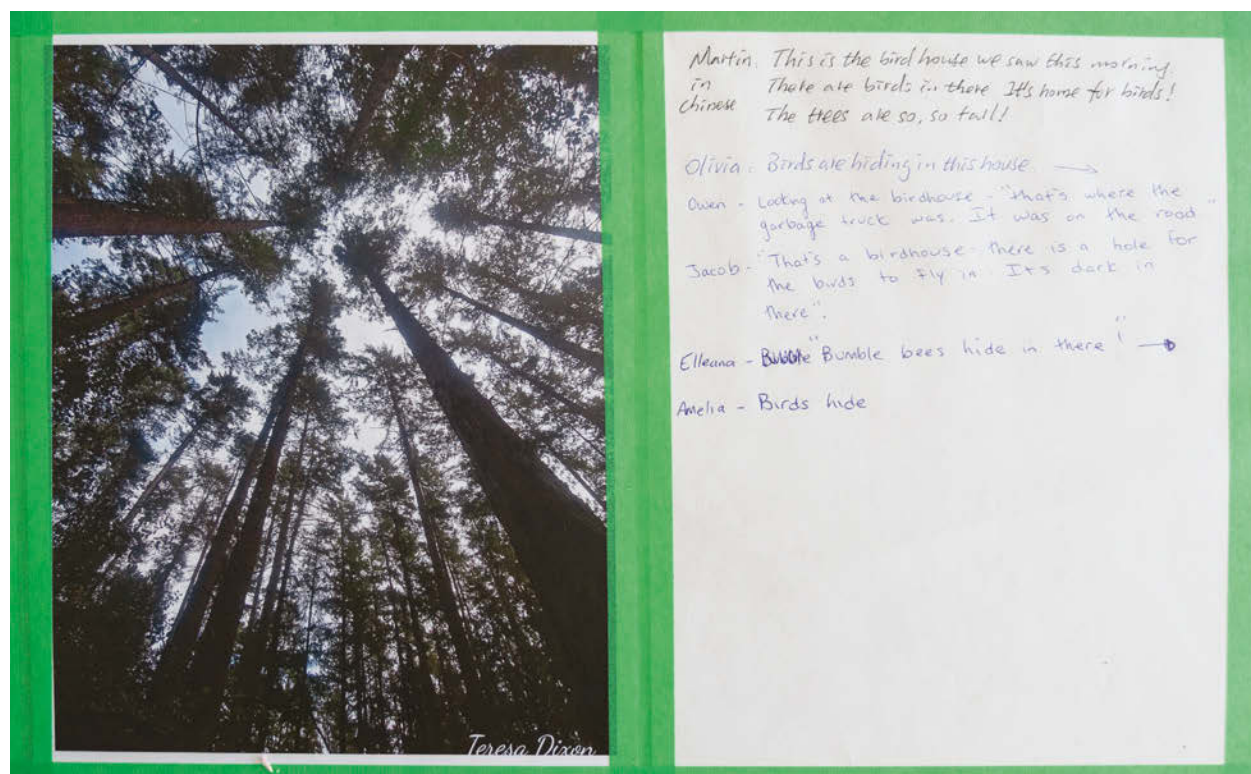 Teresa Dixon
Martin. This is the bird house we saw this morning.
in There are birds in there It's home for birds!
chinese The trees are so, so tall!
Olivia. Birds are hiding in this house. →
Owen - Looking at the birdhouse - "that's where the
garbage truck was. It was on the road"
Jacob - "That's a birdhouse - there is a hole for
the birds to fly in. It's dark in
there".
Elleana - "Bumble bees hide in there"! →
Amelia - Birds hide